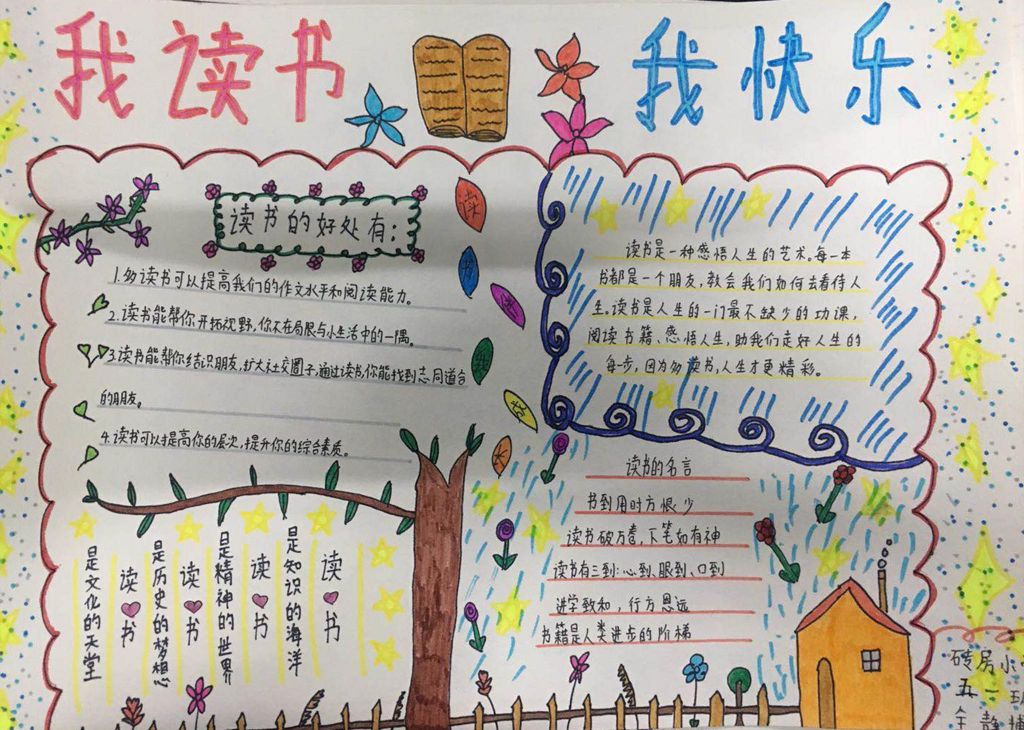 我读书 我快乐
读书的好处有:
1.多读书可以提高我们的作文水平和阅读能力。
2.读书能帮你开拓视野,你不在局限与小生活中的一隅。
3.读书能帮你结识朋友,扩大社交圈子,通过读书,你能找到志同道合
的朋友。
4.读书可以提高你的层次,提升你的综合素质。
读
书
我
读书是一种感悟人生的艺术。每一本
书都是一个朋友,教会我们如何去看待人
生。读书是人生的一门最不缺少的功课,
阅读书籍、感悟人生,助我们走好人生的
每一步,因为多读书,人生才更精彩。
读书的名言
书到用时方恨少
读书破万卷,下笔如有神
读书有三到:心到、眼到、口到
进学致和,行方思远
书籍是人类进步的阶梯
读书
是知识的海洋
读书
是精神的世界
读书
是历史的梦想
读书
是文化的天堂
砖房小
五一
静